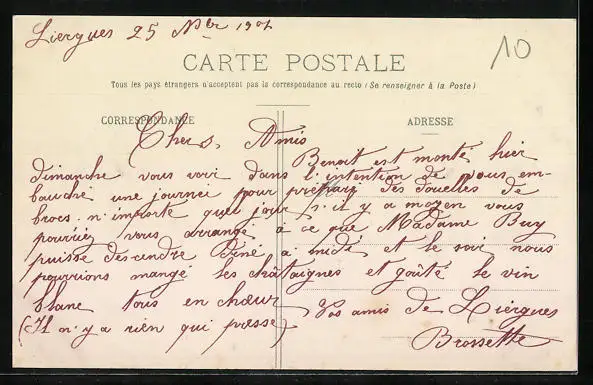 Liergues 25 Nbre 1901
10
CARTE POSTALE
Tous les pays étrangers n'acceptent pas la correspondance au recto (Se renseigner à la Poste)
CORRESPONDANCE
ADRESSE
Chers Amis
Benoit est monté hier
dimanche vous voir dans l'intention de vous em-
bauché une journei pour préparé des douelles de
brocs. n'importe quel jour s'il y a moyen vous
pourriéz vous arrangé à ce que Madame Buy
puisse déscendre diné a midi et le soir nous
pourrions mangé les châtaignes et gouté le vin
blanc tous en chœur Vos amis de Liergues
(Il n'y a rien qui presse) Brossette